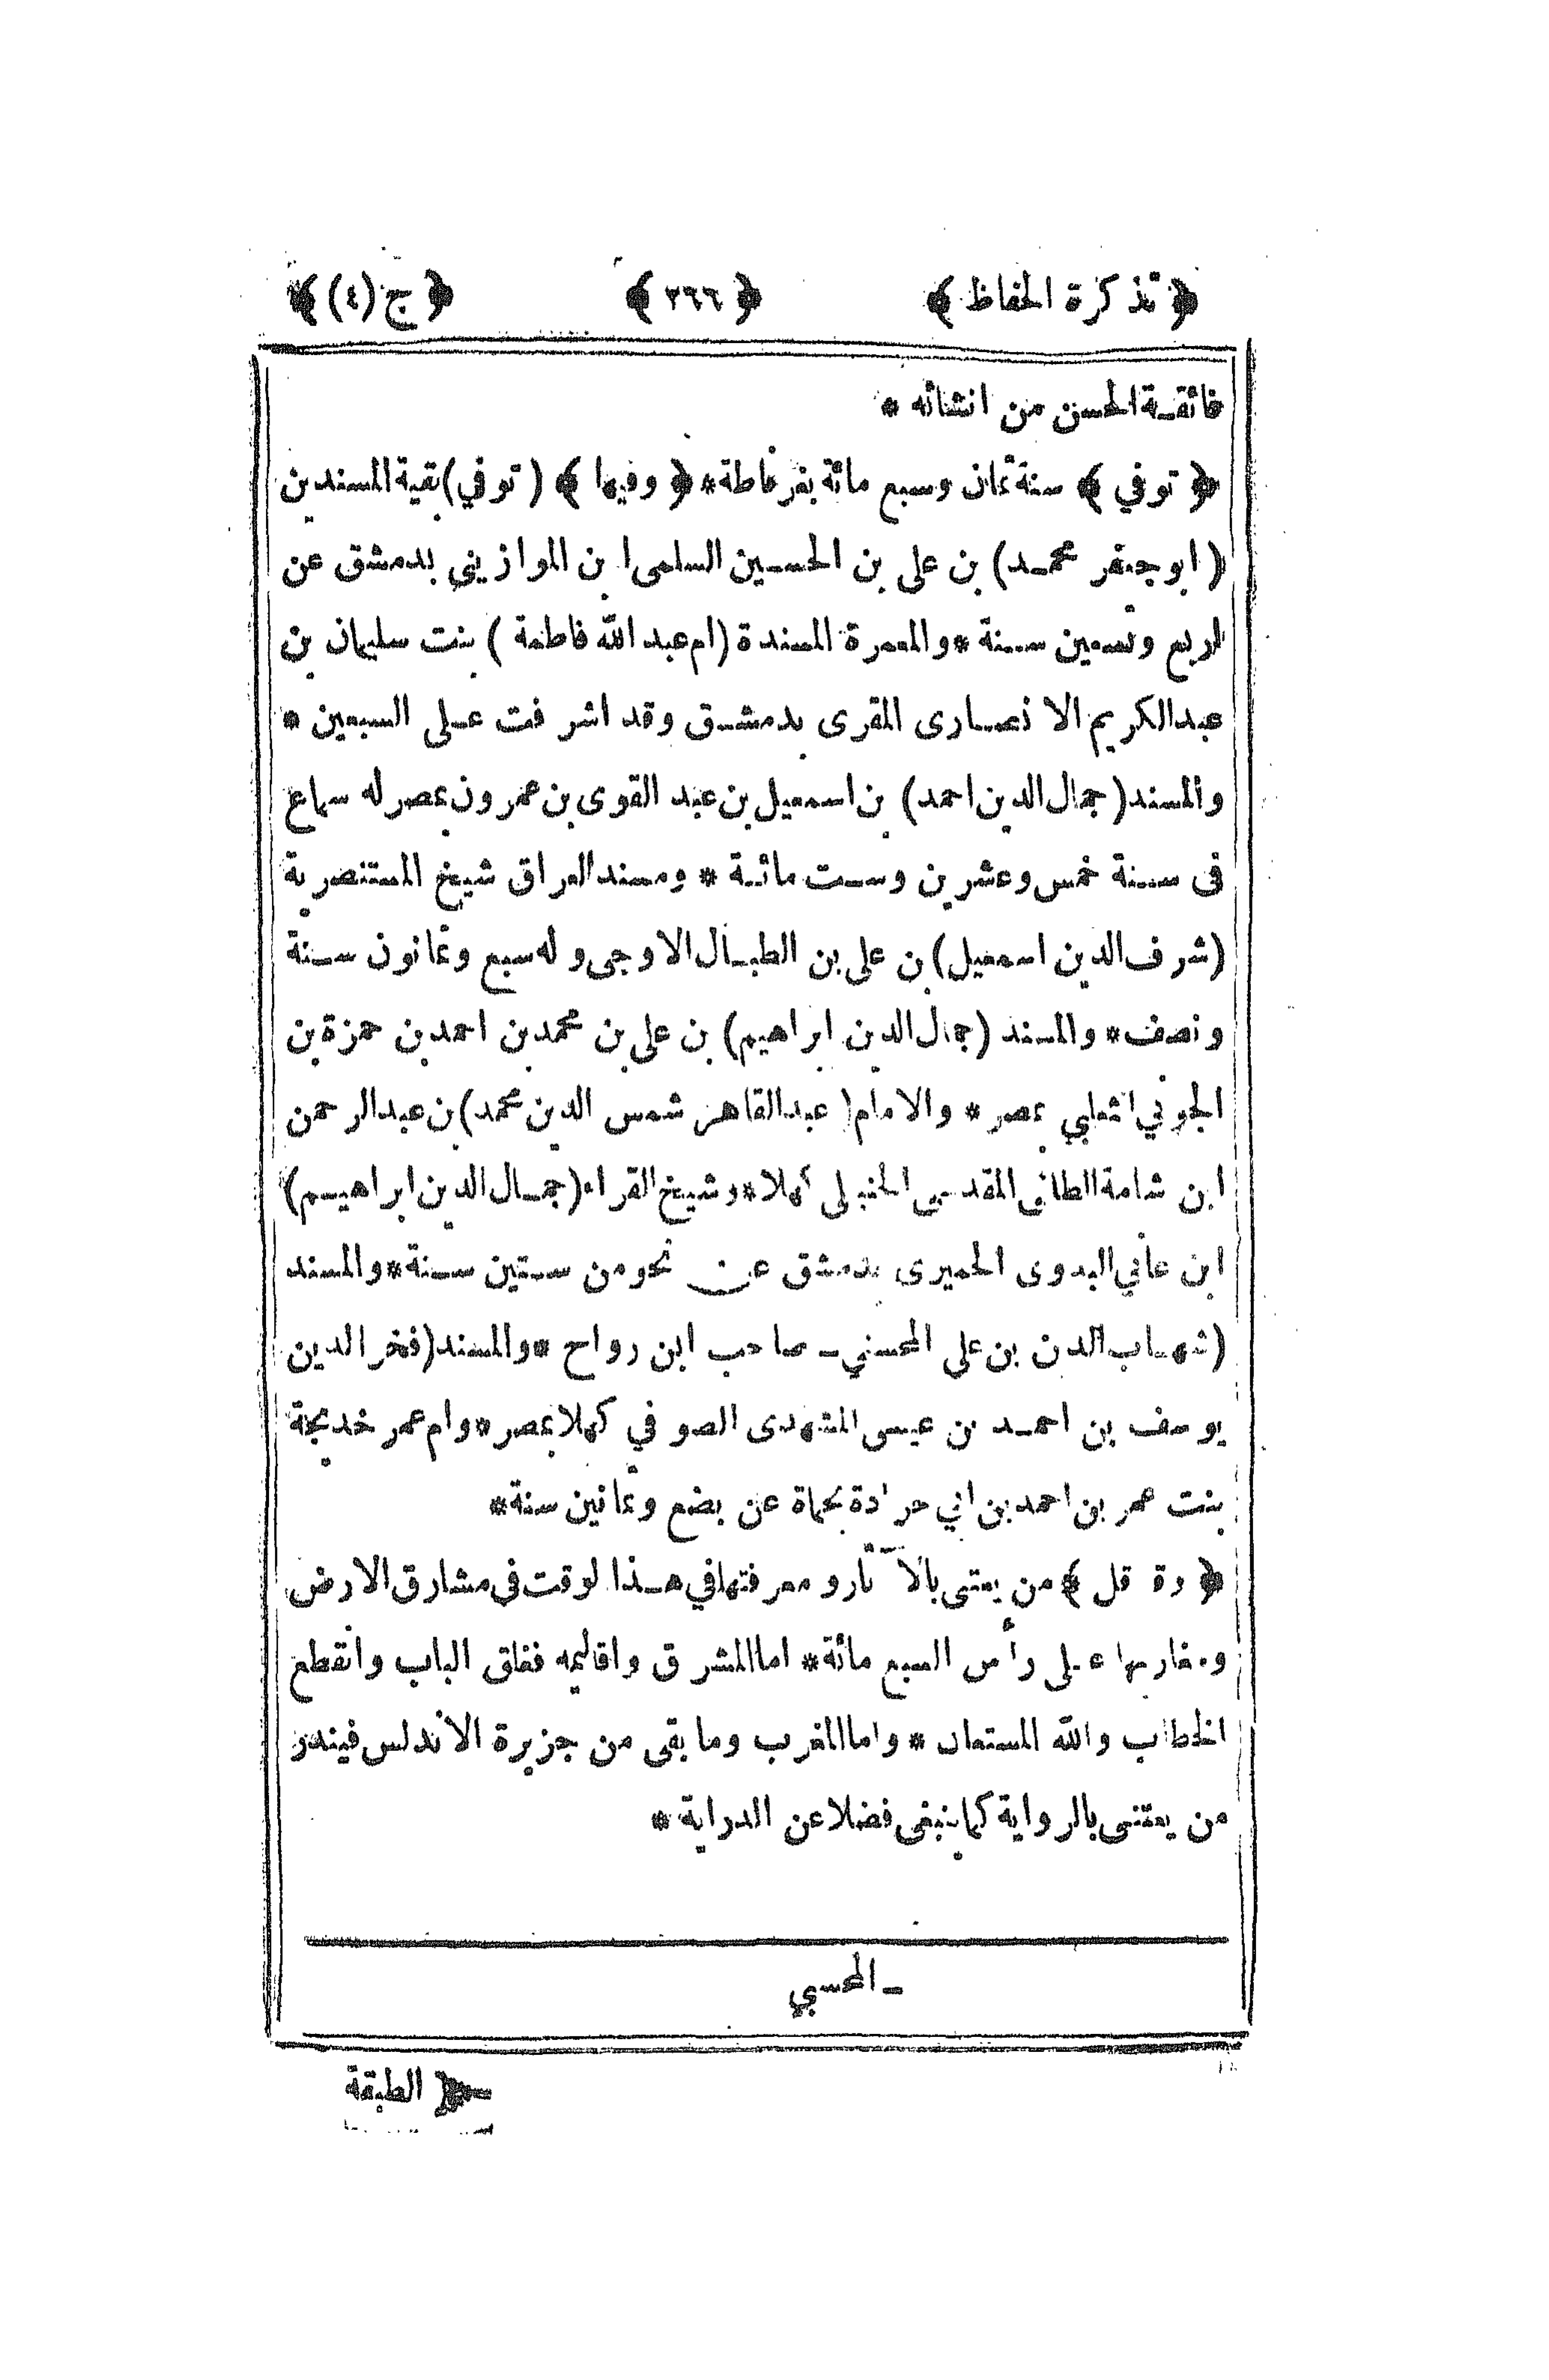 ﴿ تذكرة الحفاظ ﴾ ﴿ ٢٦٦ ﴾ ﴿ ج (٤) ﴾
فائقة الحسن من انشائه *
﴿ توفي ﴾ سنة ثمان وسبع مائة بغرناطة * ﴿ وفيها ﴾ ( توفي ) بقية المسندين
( ابو جعفر محمد ) بن علي بن الحسين السلمى ابن الموازيني بدمشق عن
اربع وتسعين سنة * والمعمرة المسندة ( ام عبد الله فاطمة ) بنت سليمان بن
عبد الكريم الانصارى المقرى بدمشق وقد اشرفت على السبعين *
والمسند ( جمال الدين احمد ) بن اسمعيل بن عبد القوى بن عمرون بمصر له سماع
فى سنة خمس وعشرين وست مائة * ومسند العراق شيخ المستنصرية
( شرف الدين اسمعيل ) بن على بن الطبال الاوجى وله سبع وثمانون سنة
ونصف * والمسند ( جمال الدين ابراهيم ) بن على بن محمد بن احمد بن حمزة بن
الجوفي بمصر * والامام ( عبد القاهر شمس الدين محمد ) بن عبد الرحمن
ابن شامة الطائى المقدسى الحنبلى كهلا * وشيخ القراء ( جمال الدين ابراهيم )
ابن غاني البدوى الحميرى بدمشق عن نحو من ستين سنة * والمسند
( شهاب الدين بن على المحسني ـ صاحب ابن رواح * والمسند ( فخر الدين
يوسف بن احمد بن عيسى المشهدى الصوفي كهلا بمصر * وام عمر خديجة
بنت عمر بن احمد بن ابي جرادة بحماة عن بضع وثمانين سنة *
﴿ وقد قل ﴾ من يعتنى بالآثار ومعرفتها في هذا الوقت فى مشارق الارض
ومغاربها على رأس السبع مائة * اما المشرق واقاليمه فغلق الباب وانقطع
الخطاب والله المستعان * واما المغرب وما بقى من جزيرة الاندلس فيندر
من يعتنى بالرواية كما ينبغى فضلا عن الدراية *
ـ المحسبي
﴿ الطبقة